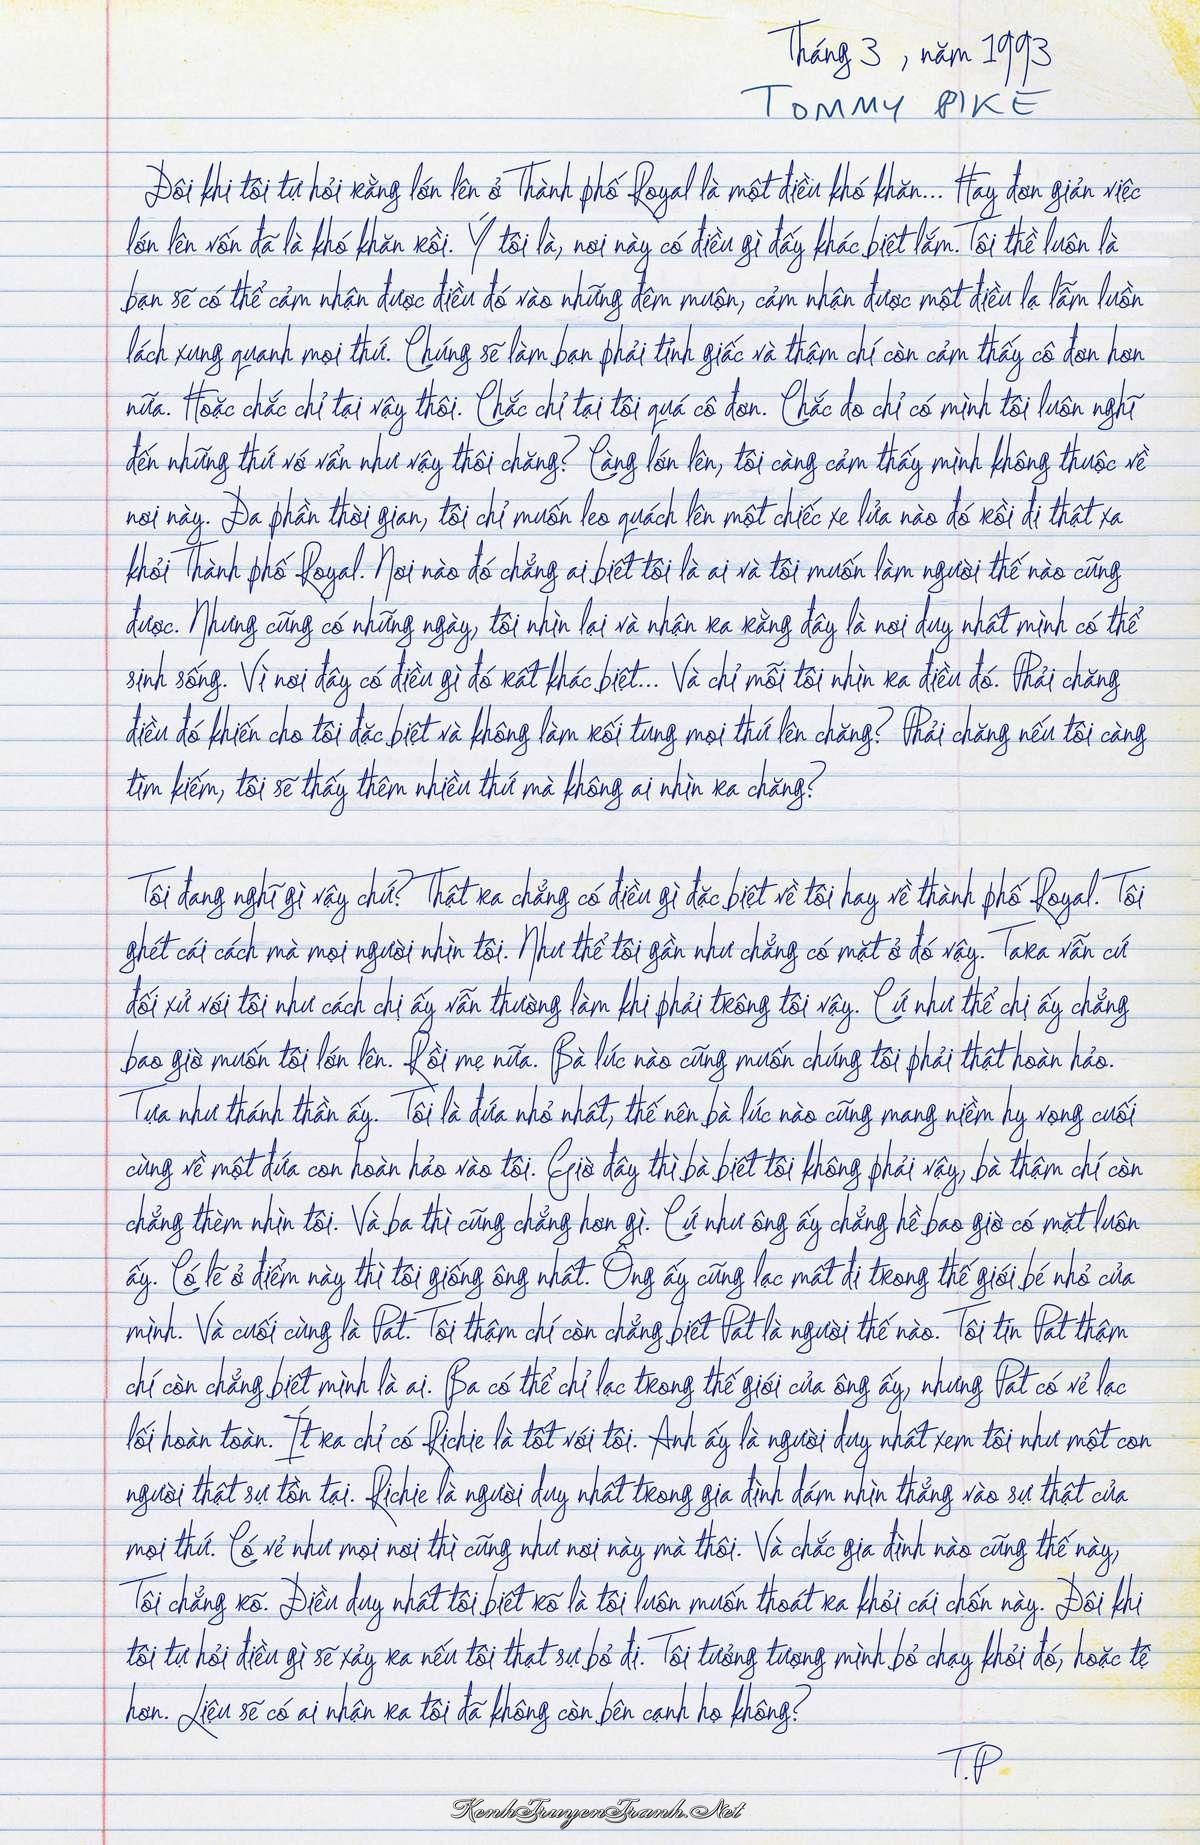 Tháng 3 , năm 1993
TOMMY PIKE
Đôi khi tôi tự hỏi rằng lớn lên ở Thành phố Royal là một điều khó khăn... Hay đơn giản việc
lớn lên vốn đã là khó khăn rồi. Ý tôi là, nơi này có điều gì đấy khác biệt lắm. Tôi thề luôn là
bạn sẽ có thể cảm nhận được điều đó vào những đêm muộn, cảm nhận được một điều lạ lẫm luồn
lách xung quanh mọi thứ. Chúng sẽ làm bạn phải tỉnh giấc và thậm chí còn cảm thấy cô đơn hơn
nữa. Hoặc chắc chỉ tại vậy thôi. Chắc chỉ tại tôi quá cô đơn. Chắc do chỉ có mình tôi luôn nghĩ
đến những thứ vớ vẩn như vậy thôi chăng? Càng lớn lên, tôi càng cảm thấy mình không thuộc về
nơi này. Đa phần thời gian, tôi chỉ muốn leo quách lên một chiếc xe lửa nào đó rồi đi thật xa
khỏi Thành phố Royal. Nơi nào đó chẳng ai biết tôi là ai và tôi muốn làm người thế nào cũng
được. Nhưng cũng có những ngày, tôi nhìn lại và nhận ra rằng đây là nơi duy nhất mình có thể
sinh sống. Vì nơi đây có điều gì đó rất khác biệt... Và chỉ mỗi tôi nhìn ra điều đó. Phải chăng
điều đó khiến cho tôi đặc biệt và không làm rối tung mọi thứ lên chăng? Phải chăng nếu tôi càng
tìm kiếm, tôi sẽ thấy thêm nhiều thứ mà không ai nhìn ra chăng?
Tôi đang nghĩ gì vậy chứ? Thật ra chẳng có điều gì đặc biệt về tôi hay về thành phố Royal. Tôi
ghét cái cách mà mọi người nhìn tôi. Như thể tôi gần như chẳng có mặt ở đó vậy. Tara vẫn cứ
đối xử với tôi như cách chị ấy vẫn thường làm khi phải trông tôi vậy. Cứ như thể chị ấy chẳng
bao giờ muốn tôi lớn lên. Rồi mẹ nữa. Bà lúc nào cũng muốn chúng tôi phải thật hoàn hảo.
Tựa như thánh thần ấy. Tôi là đứa nhỏ nhất, thế nên bà lúc nào cũng mang niềm hy vọng cuối
cùng về một đứa con hoàn hảo vào tôi. Giờ đây thì bà biết tôi không phải vậy, bà thậm chí còn
chẳng thèm nhìn tôi. Và ba thì cũng chẳng hơn gì. Cứ như ông ấy chẳng hề bao giờ có mặt luôn
ấy. Có lẽ ở điểm này thì tôi giống ông nhất. Ông ấy cũng lạc mất đi trong thế giới bé nhỏ của
mình. Và cuối cùng là Pat. Tôi thậm chí còn chẳng biết Pat là người thế nào. Tôi tin Pat thậm
chí còn chẳng biết mình là ai. Ba có thể chỉ lạc trong thế giới của ông ấy, nhưng Pat có vẻ lạc
lối hoàn toàn. Ít ra chỉ có Richie là tốt với tôi. Anh ấy là người duy nhất xem tôi như một con
người thật sự tồn tại. Richie là người duy nhất trong gia đình dám nhìn thẳng vào sự thật của
mọi thứ. Có vẻ như mọi nơi thì cũng như nơi này mà thôi. Và chắc gia đình nào cũng thế này,
Tôi chẳng rõ. Điều duy nhất tôi biết rõ là tôi luôn muốn thoát ra khỏi cái chốn này. Đôi khi
tôi tự hỏi điều gì sẽ xảy ra nếu tôi thạt sự bỏ đi. Tôi tưởng tượng mình bỏ chạy khỏi đó, hoặc tệ
hơn. Liệu sẽ có ai nhận ra tôi đã không còn bên cạnh họ không?
T.P
KenhTruyenTranh.Net